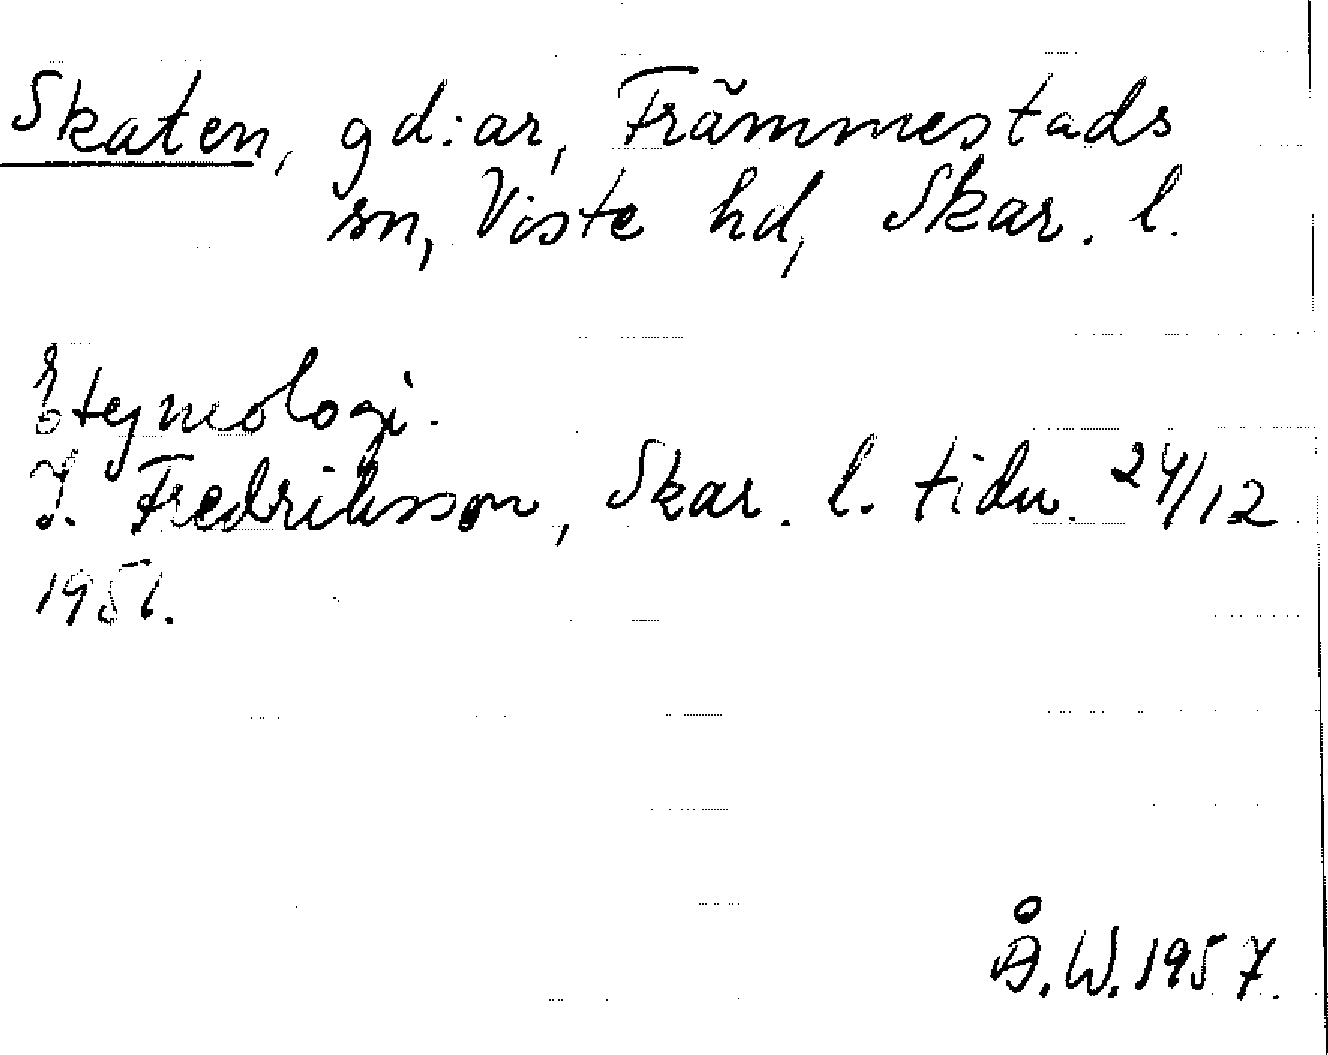 Skaten, gd:ar, Främmestads
sn, Viste hd, Skar. l.
Etymologi.
I. Fredriksson, Skar. l. tidn. 24/12
1951.
Å.W. 1957.